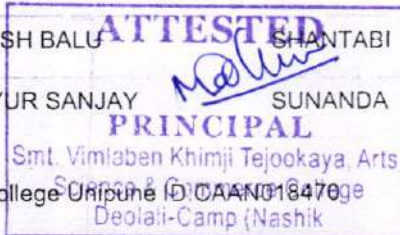 SH BALU ATTESTED SHANTABI
YUR SANJAY SUNANDA
PRINCIPAL
Smt. Vimlaben Khimji Tejookaya, Arts
ollege Unipune ID:CAAN018470
Science & Commerce College
Deolali-Camp (Nashik